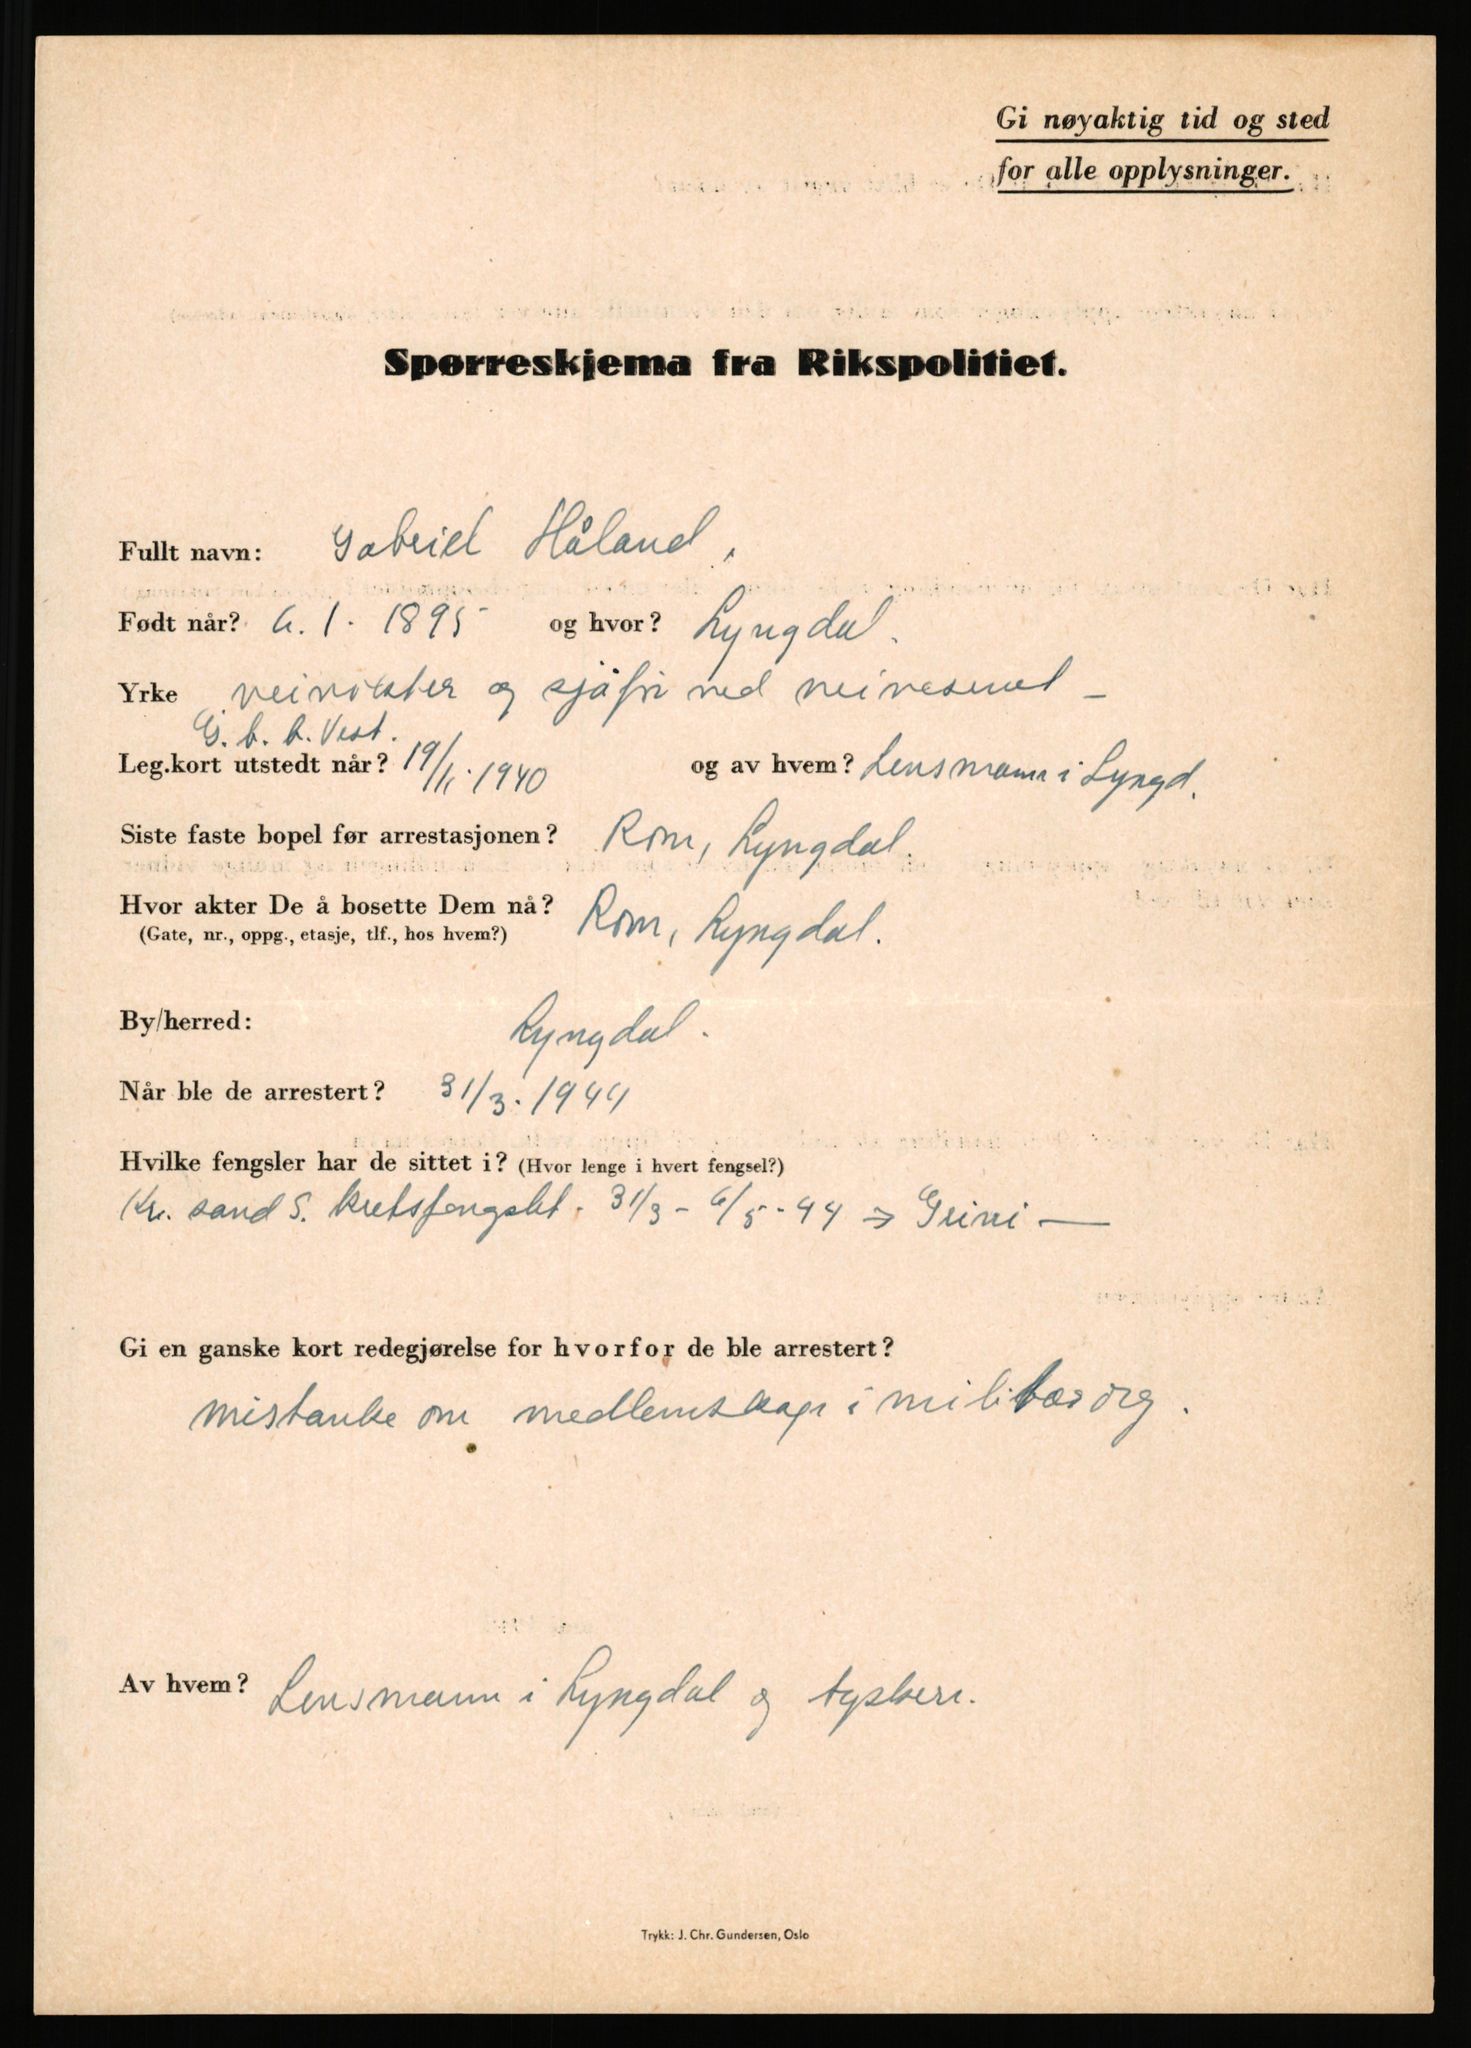 Gi nøyaktig tid og sted
for alle opplysninger.
Spørreskjema fra Rikspolitiet.
Fullt navn: Gabriel Håland.
Født når? 6. 1. 1895 og hvor? Lyngdal.
Yrke veivokter og sjåfør ved veivesenet –
G. b. b. Vest.
Leg.kort utstedt når? 19/11. 1940 og av hvem? Lensmann i Lyngd.
Siste faste bopel før arrestasjonen? Rom, Lyngdal.
Hvor akter De å bosette Dem nå? Rom, Lyngdal.
(Gate, nr., oppg., etasje, tlf., hos hvem?)
By/herred: Lyngdal.
Når ble de arrestert? 31/3. 1944
Hvilke fengsler har de sittet i? (Hvor lenge i hvert fengsel?)
Kr. sand S. kretsfengslet. 31/3 – 6/5 - 44 → Grini —
Gi en ganske kort redegjørelse for hvorfor de ble arrestert?
mistanke om medlemskap i militær org.
Av hvem? Lensmann i Lyngdal og tyskere.
Trykk: J. Chr. Gundersen, Oslo